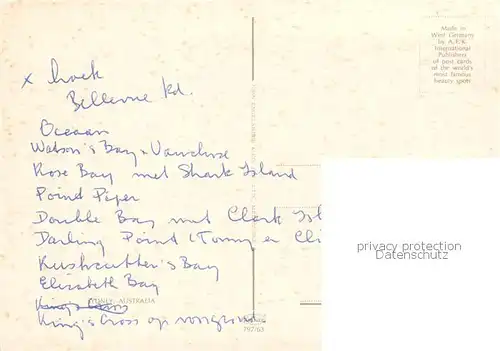 x hoek
Bellevue Rd.
Oceaan
Watson's Bay + Vaucluse
Rose Bay met Shark Island
Point Piper
Double Bay met Clark Isl
Darling Point (Tommy en Cli
Rushcutter's Bay
Elizabeth Bay
SYDNEY, AUSTRALIA
King's Cross op voorgrond
797/63
Made in
West Germany
by A.F.K.
International
Publishers
of post cards
of the world's
most famous
beauty spots
privacy protection
Datenschutz